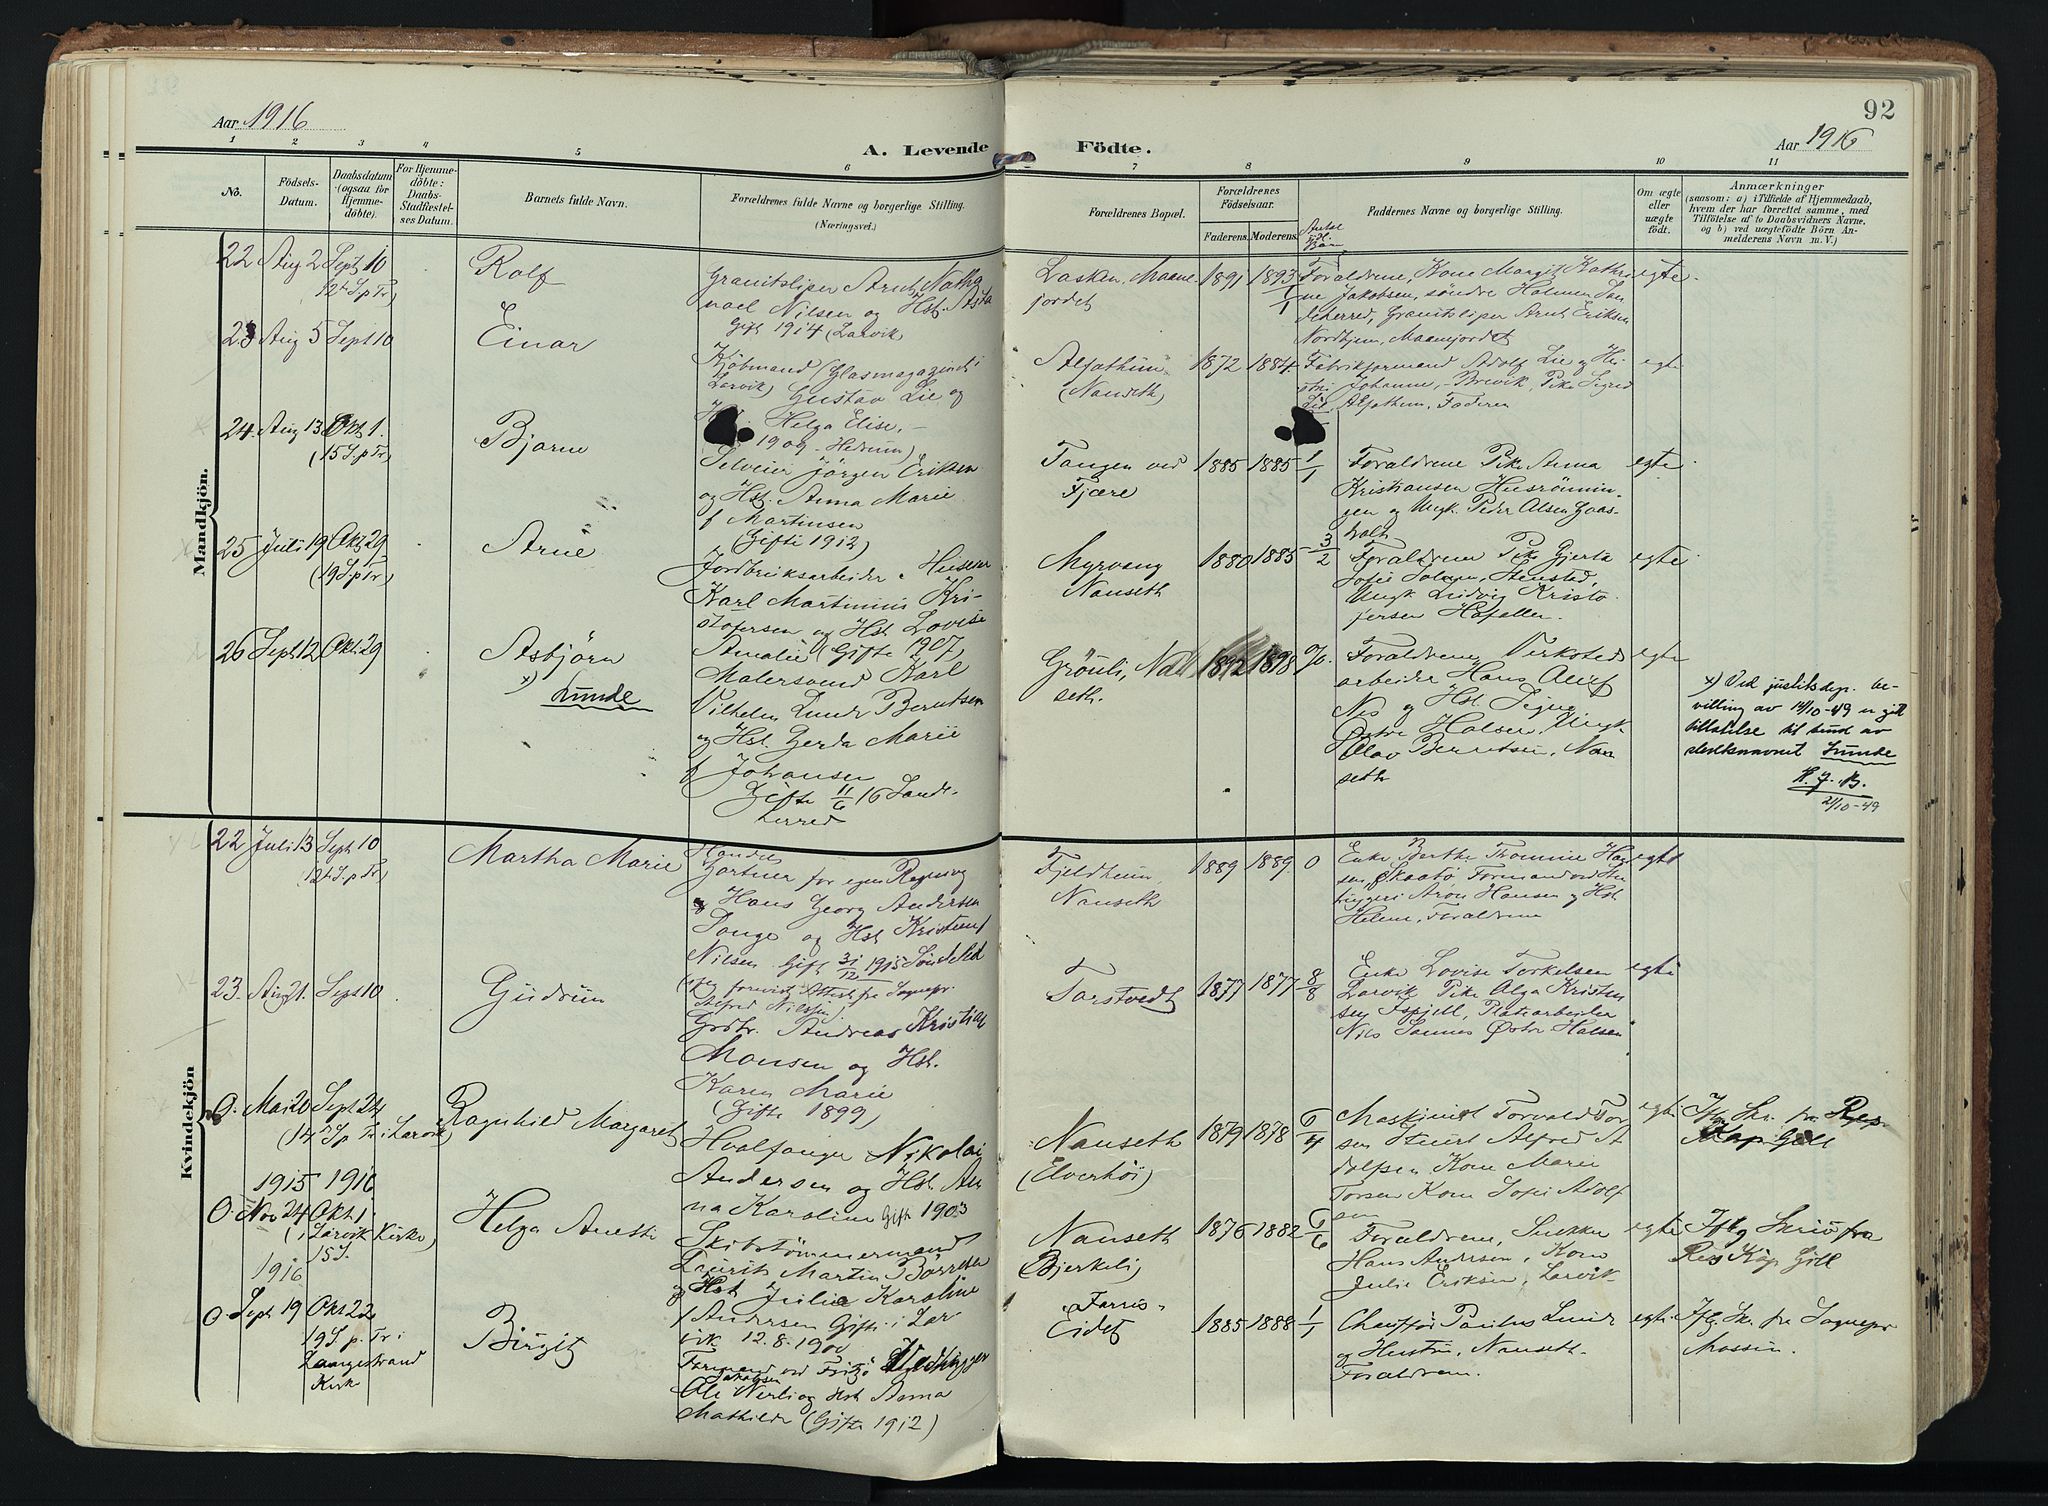 Aar 1916
A. Levende Födte.
92
Aar 1916
1 2 3 4 5 6 7 8 9 10 11
No.
Födsels-Datum.
Daabsdatum (ogsaa for Hjemmedöbte).
For Hjemmedöbte: Daabs-Stadfæstelses Datum.
Barnets fulde Navn.
Forældrenes fulde Navne og borgerlige Stilling.
(Næringsvei.)
Forældrenes Bopæl.
Forældrenes Födselsaar.
Faderens. Moderens.
Faddernes Navne og borgerlige Stilling.
Om ægte eller uægte födt.
Anmærkninger
(saasom: a) i Tilfælde af Hjemmedaab,
hvem der har forrettet samme, med
Tilföielse af to Daabsvidners Navne,
og b) ved uægtefödte Börn An-
melderens Navn m. V.)
Mandkjön.
22 Aug 2 Sept 10
12 S. p Tr)
Rolf
Granitsliper Arnt Natha
nael Nilsen og Hst. Asta
Gift 1914 (Larvik
Maane
jordet
1891 1893
1/1
Forældrene, Kone Margit Kathri
ne Jakobsen, söndre Holmen San
deherred, Granitsliper Arnt Eriksen
Nordhjem, Maanejordet
egte
23 Aug 5 Sept 10
Einar
Kjöbmand (Glasmagazinet i
Larvik) Gustav Lie og
Helga Elise,
1909 - Hedrum)
(Nanseth)
1872 1884
Fabrikformand Adolf Lie og Hu-
stru Johanne, Brevik, Pike Sigrid
Lie, Faderen
egte
24. Aug 13 Okt 1.
(15 S. p Tr)
Bjarne
Jörgen Eriksen
og Hst. Anna Marie
f Martinsen
(Gifte 1912)
Tangen ved
Fjære
1885 1885 1/1
Forældrene Pike Anna
Kristiansen
gen og Ungk. Peder Olsen Gaas-
holt
egte
25 Juli 19 Okt 29
(19 S. p Tr)
Arne
Jordbruksarbeider, Husein
Karl Martinius Kri-
stofersen og Hst Lovise
Amalie (Gifte 1907)
Myrvang
Nanseth
1880 1885 3/2
Forældrene Pike Gjerta
Sofie
Ungk Ludvig Kristo
fersen
egte
26 Sept 12 Okt 29
Asbjörn
x) Lunde
Malersvend Karl
Vilhelm Berntsen
og Hst. Gerda Marie
f Johansen
Gifte 11/6 16 Sande-
herred
Grönli, Nan
seth.
1892 1898 %.
Forældrene, Verksteds
arbeider Hans Oluf
Nes og Hst. Signe
Östre Halsen, Ungk
Olav Berntsen, Nan
seth
egte
x) Ved justitsdep. be-
villing av 14/10-49 er git
tillatelse til bruk av
slektsnavnet Lunde
H. J. B.
21/10-49
Kvindekjön
22 Juli 13 Sept 10
(12 S. p Tr)
Martha Marie
Handels
Gartner for egen Regning
Hans Georg Andersen
Tange og Hst Kristine
Nilsen Gift 31/12 1915
Fjeldheim
Nanseth
1889 1889. 0
Enke Berthe Thomine Han
sen, Skaatö Formand ved
Aron Hansen og Hst
Helene, Forældrene
egte
23. Aug 21. Sept 10
Gudrun
Grdbr. Andreas Kristian
Monsen og Hst.
Karen Marie
(Gifte 1899)
Torstvedt
1877 1877 8/8
Enke Lovise Torkelsen
Larvik Pike Olga Kristen
sen Platearbeider
Nils Sannes Östre Halsen
egte
0. Mai 20 Sept 24
(14 S. p Tr i Larvik)
Ragnhild Margaret
Hvalfanger Nikolai
Andersen og Hst. An
na Karoline Gifte 1903
Nanseth
(Elverhöi)
1879 1878 6/4
Maskinist Torvald Tor
sen Stuert Alfred A
dolfsen Kone Marie
Torsen Kone Sofie Adolf
sen
egte
Ifg Skr. fra Res
Kap. Gill
1915 1916
0 Nov 24 Okt 1
(i Larvik Kirke)
15 S.
Helga Anette
Skibstömmermand
Laurits Martin Börresen
og Hst Julie Karoline
f Andersen Gifte i Lar-
vik 12. 8. 1900
Nanseth
(Bjerkeli)
1876 1882 6/6
Forældrene,
Hans Andersen, Kone
Julie Eriksen, Larvik
egte
Ifg Skriv fra
Res Kap Gill
1916
0. Sept 19 Okt 22
19 S. p. Tr i
Langestrand
Kirke
Birgit
Formand ved Fritzö
Jakobsen
Ole Nerli og Hst Anna
Mathilde (Gifte 1912)
Farris-
Eidet
1885 1888 1/1
Chaufför Paulus Lund
og Hustru, Nanseth.
Forældrene.
egte
Ifg. Skr. fra Sognepr
Mossin.